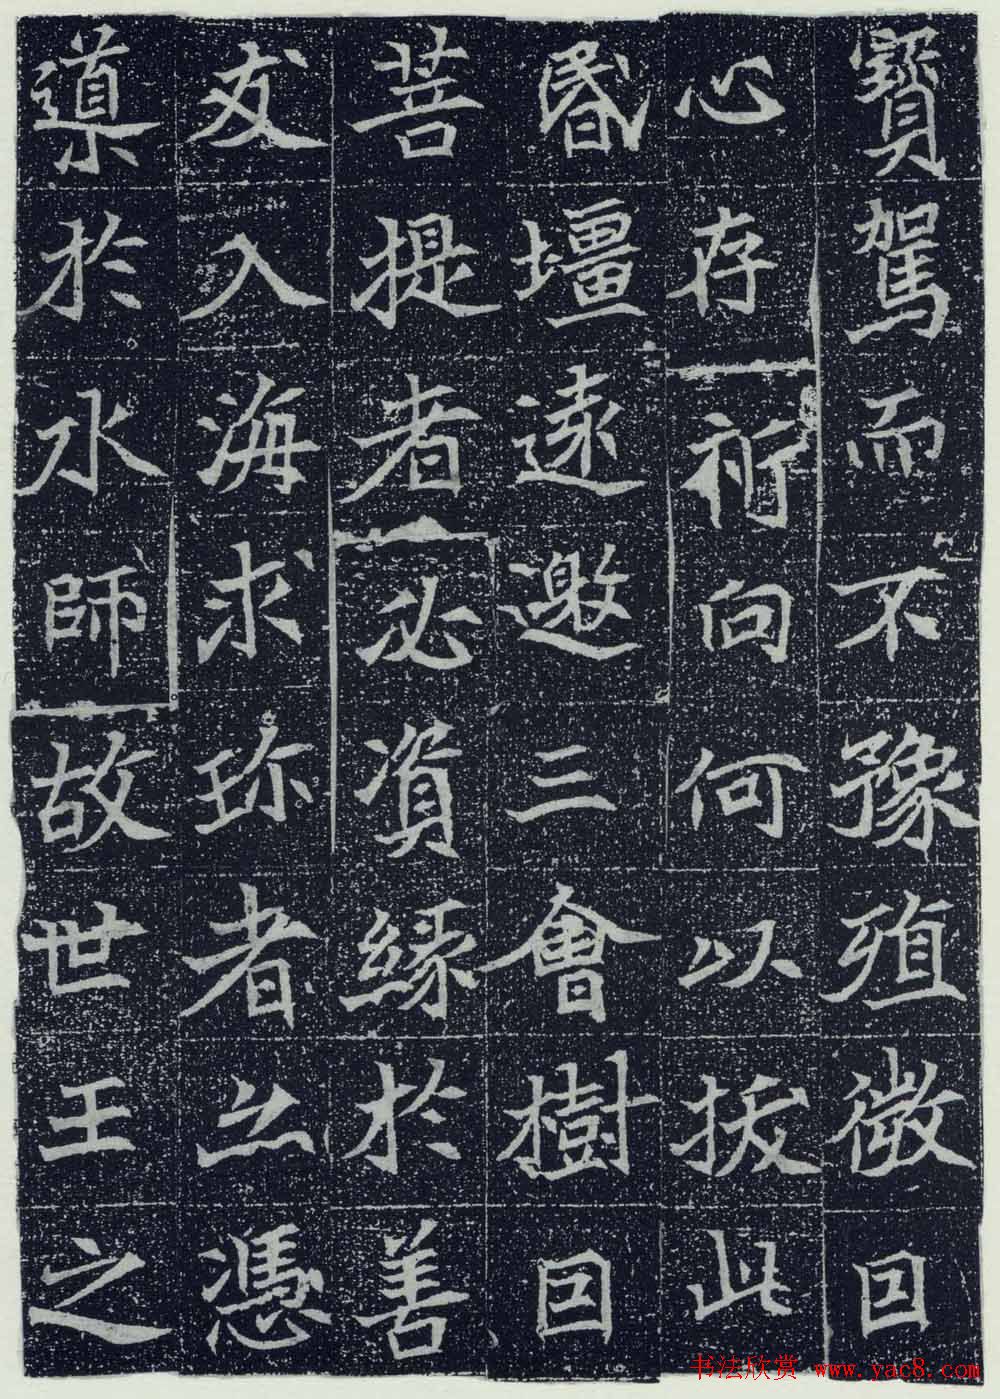 寶駕而不豫殖微因
心存祈向何以拔此
昬壃遠邀三會樹因
菩提者必資緣於善
友入海求珎者亦憑
導於水師故世王之
书法欣赏 www.yac8.com